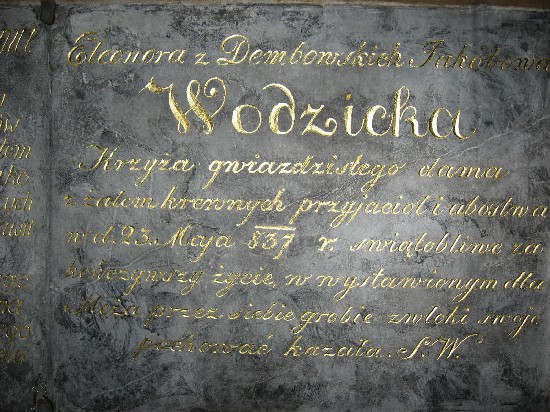 Eleonora z Dembowskich Jakóbowa
Wodzicka
Krzyża gwiazdzistego dama
z żalem krewnych przyjaciół i ubostwa
w d. 23. Maja 837 r. swiątobliwe za
kończywszy życie, w wystawionym dla
Męża przez siebie grobie zwłoki swoje
pochować kazała. S. W.